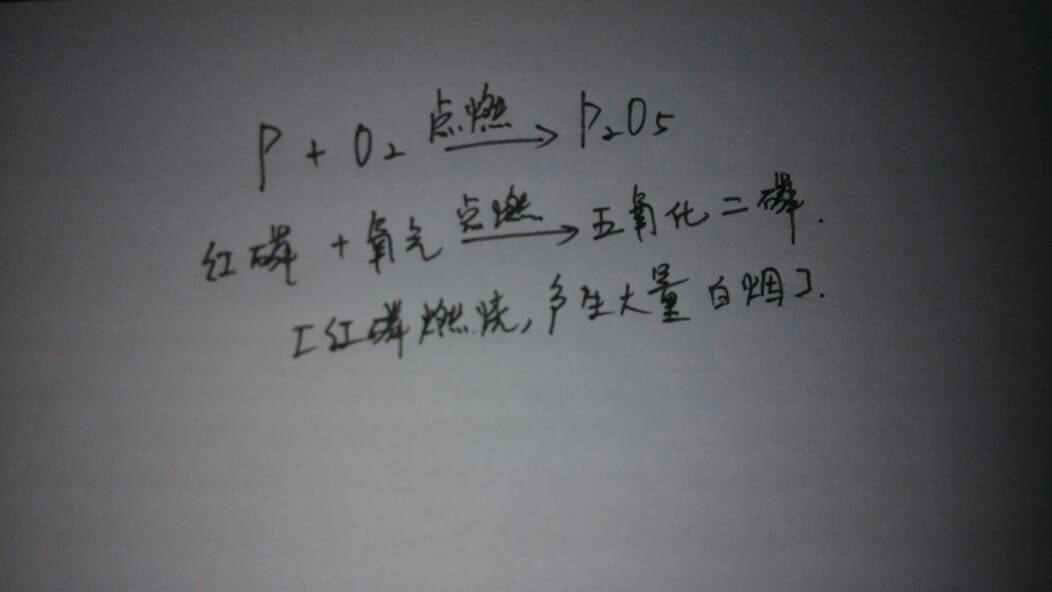 P + O₂ 点燃→ P₂O₅
红磷 + 氧气 点燃→ 五氧化二磷.
[红磷燃烧, 产生大量白烟].